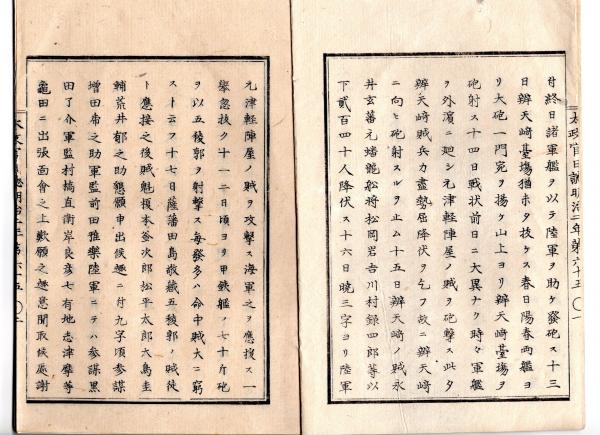 太政官日誌明治二年第六十五
日終日諸軍艦ヲ以テ陸軍ヲ助ケ發砲ス十三
日辨天﨑臺場猶ホタ拔ケス春日陽春両艦ヨ
リ大砲一門宛ヲ揚ケ山上ヨリ辨天﨑臺場ヲ
砲射ス十四日戰状前日ニ大異ナク時々軍艦
ヲ外濱ニ廻シ元津輕陣屋ノ賊ヲ砲撃ス此夕
辨天﨑賊兵力盡勢屈降伏ヲ乞フ故ニ辨天﨑
ニ向ヒ砲射スルヲ止ム十五日辨天﨑ノ賊永
井玄蕃元蟠龍船將松岡岩吉川村録四郎等以
下貳百四十人降伏ス十六日曉三字ヨリ陸軍
元津輕陣屋ノ賊ヲ攻撃ス海軍之ヲ應援ス一
舉忽拔ク十一二日頃ヨリ甲鉄艦ノ七十斤砲
ヲ以五稜郭ヲ射撃ス每發多ハ命中賊大ニ窮
スト云フ十七日薩藩田島敬藏五稜郭ノ賊徒
ト應接之後賊魁榎本釜次郎松平太郎大島圭
輔荒井郁之助懇願申出候趣ニ付九字頃參謀
増田甫之助軍監前田雅樂陸軍ニテハ參謀黒
田了介軍監村橋直衛岸良彦七有地志津摩等
龜田ニ出張面會之上歎願之趣意聞取候處謝
太政官日誌明治二年第六十五